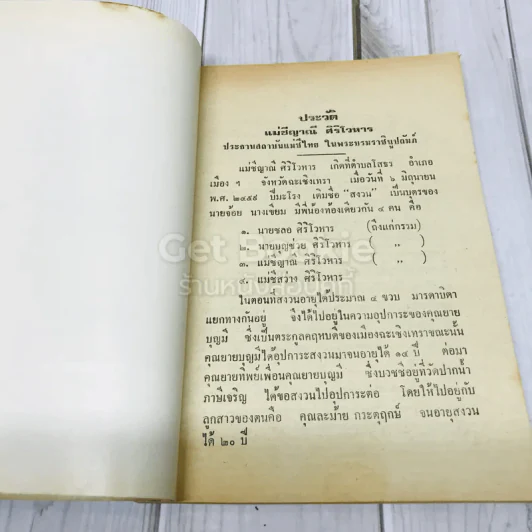 ประวัติ
แม่ชีญาณี ศิริโวหาร
ประธานสถาบันแม่ชีไทย ในพระบรมราชินูปถัมภ์
แม่ชีญาณี ศิริโวหาร เกิดที่ตำบลโสธร อำเภอ
เมือง ฯ จังหวัดฉะเชิงเทรา เมื่อวันที่ ๖ มิถุนายน
พ.ศ. ๒๔๕๙ ปีมะโรง เดิมชื่อ "สงวน" เป็นบุตรของ
นายจ้อย นางเขียม มีพี่น้องท้องเดียวกัน ๔ คน คือ
๑. นายชลอ ศิริโวหาร (ถึงแก่กรรม)
๒. นายบุญช่วย ศิริโวหาร ( ,, )
๓. แม่ชีญาณี ศิริโวหาร ( ,, )
๔. แม่ชีสว่าง ศิริโวหาร
ในตอนที่สงวนอายุได้ประมาณ ๔ ขวบ มารดาบิดา
แยกทางกันอยู่ จึงได้ไปอยู่ในความอุปการะของคุณยาย
บุญมี ซึ่งเป็นตระกูลคฤหบดีของเมืองฉะเชิงเทราขณะนั้น
คุณยายบุญมีได้อุปการะสงวนมาจนอายุได้ ๑๔ ปี ต่อมา
คุณยายทิพย์เพื่อนคุณยายบุญมี ซึ่งบวชชีอยู่ที่วัดปากน้ำ
ภาษีเจริญ ได้ขอสงวนไปอุปการะต่อ โดยให้ไปอยู่กับ
ลูกสาวของตนคือ คุณละม้าย กระตุฤกษ์ จนอายุสงวน
ได้ ๒๐ ปี
Get Bookie
ร้านหนังสือบุ๊คกี้